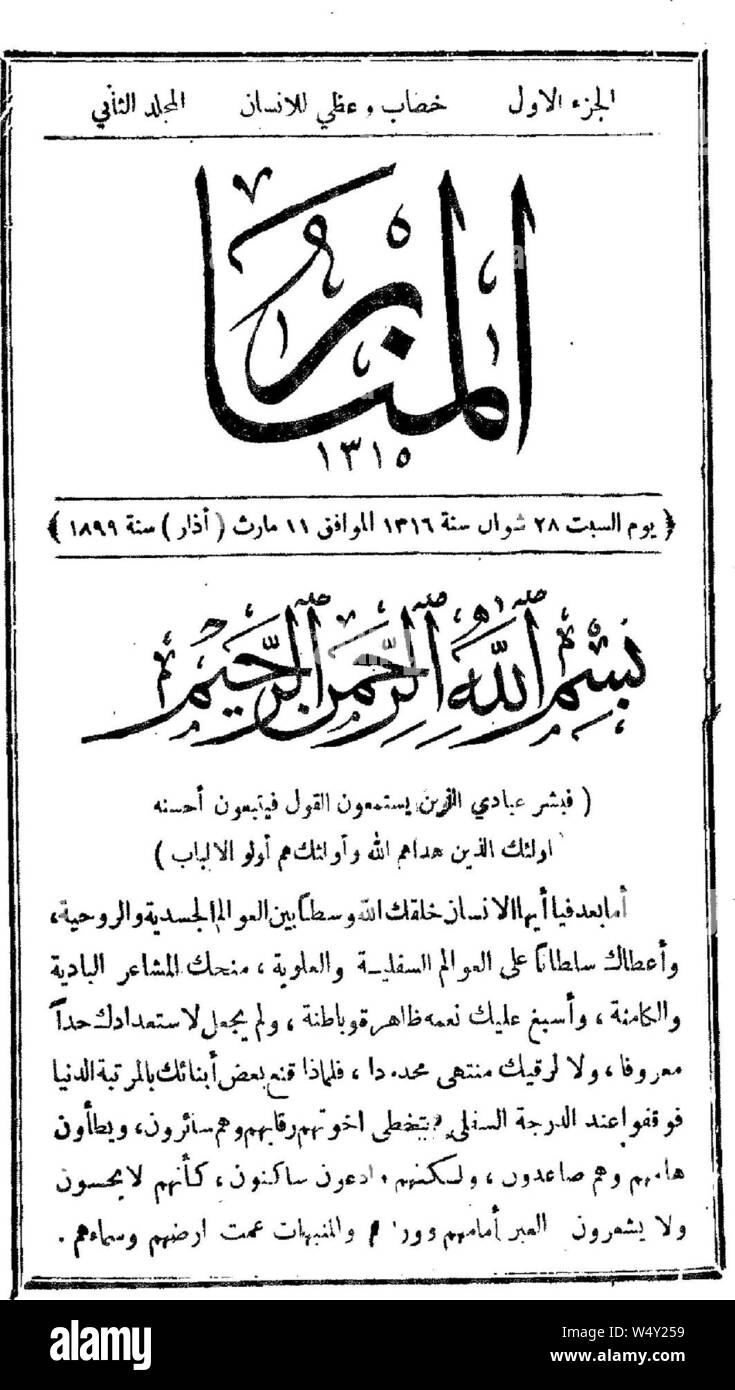 الجزء الاول خطاب وعظي للانسان المجلد الثاني
المنار
١٣١٥
﴿ يوم السبت ٢٨ شوال سنة ١٣١٦ الموافق ١١ مارث ( أذار ) سنة ١٨٩٩ ﴾
بسم الله الرحمن الرحيم
( فبشر عبادي الذين يستمعون القول فيتبعون أحسنه
اولئك الذين هداهم الله وأولئك هم أولو الالباب )
أما بعد فيا أيها الانسان خلقك الله وسطا بين العوالم الجسدية والروحية،
وأعطاك سلطانا على العوالم السفلية والعلوية، منحك المشاعر البادية
والكامنة، وأسبغ عليك نعمه ظاهرة وباطنة، ولم يجعل لاستعدادك حداً
معروفا، ولا لرقيك منتهى محدودا، فلماذا قنع بعض أبنائك بالمرتبة الدنيا
فوقفوا عند الدرجة السفلى يتخطى اخوتهم رقابهم وهم سائرون، ويطأون
هامهم وهم صاعدون، ولكنهم وادعون ساكنون، كأنهم لا يحسون
ولا يشعرون العبر أمامهم والمنبهات عمت ارضهم وسماءهم.
alamy
Image ID: W4Y259
www.alamy.com